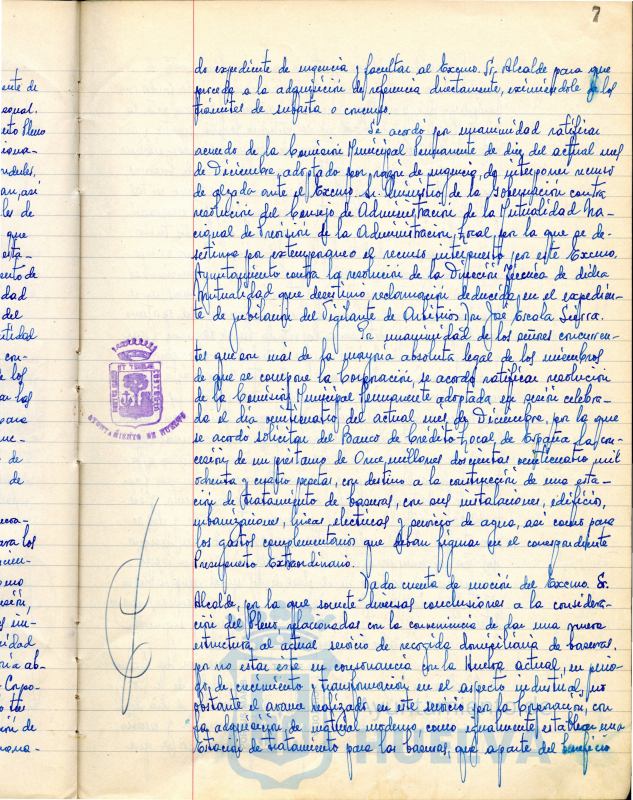 7
do expediente de urgencia y facultar al Excmo. Sr. Alcalde para que
proceda a la adquisición de referencia directamente, eximiéndole de los
trámites de subasta o concurso.
Se acordó por unanimidad ratificar
acuerdo de la Comisión Municipal Permanente de diez del actual mes
de Diciembre, adoptado por razón de urgencia, de interponer recurso
de alzada ante el Excmo. Sr. Ministro de la Gobernación contra
resolución del Consejo de Administración de la Mutualidad Na-
cional de Previsión de la Administración Local, por la que se de-
sestima por extemporáneo el recurso interpuesto por este Excmo.
Ayuntamiento contra la resolución de la Dirección Técnica de dicha
Mutualidad que desestimó reclamación deducida en el expedien-
te de jubilación del Vigilante de Arbitrios Don José Escala
Por unanimidad de los señores concurren-
tes que son más de la mayoría absoluta legal de los miembros
de que se compone la Corporación, se acordó ratificar resolución
de la Comisión Municipal Permanente adoptada en sesión celebra-
da el día veinticuatro del actual mes de Diciembre, por la que
se acordó solicitar del Banco de Crédito Local de España la con-
cesión de un préstamo de Once millones doscientas veinticuatro mil
ochenta y cuatro pesetas, con destino a la construcción de una esta-
ción de tratamiento de basuras, con sus instalaciones, edificio,
urbanizaciones, líneas eléctricas y servicio de agua, así como para
los gastos complementarios que deban figurar en el correspondiente
Presupuesto Extraordinario.
Dada cuenta de moción del Excmo. Sr.
Alcalde, por la que somete diversas conclusiones a la considera-
ción del Pleno, relacionadas con la conveniencia de dar una nueva
estructura al actual servicio de recogida domiciliaria de basuras,
por no estar este en consonancia con la Huelva actual, en perio-
do de crecimiento y transformación en el aspecto industrial, no
obstante el avance realizado en este servicio por la Corporación, con
la adquisición de material moderno, como igualmente establecer una
Estación de tratamiento para las basuras, que aparte del beneficio
AYUNTAMIENTO DE HUELVA
HUELVA